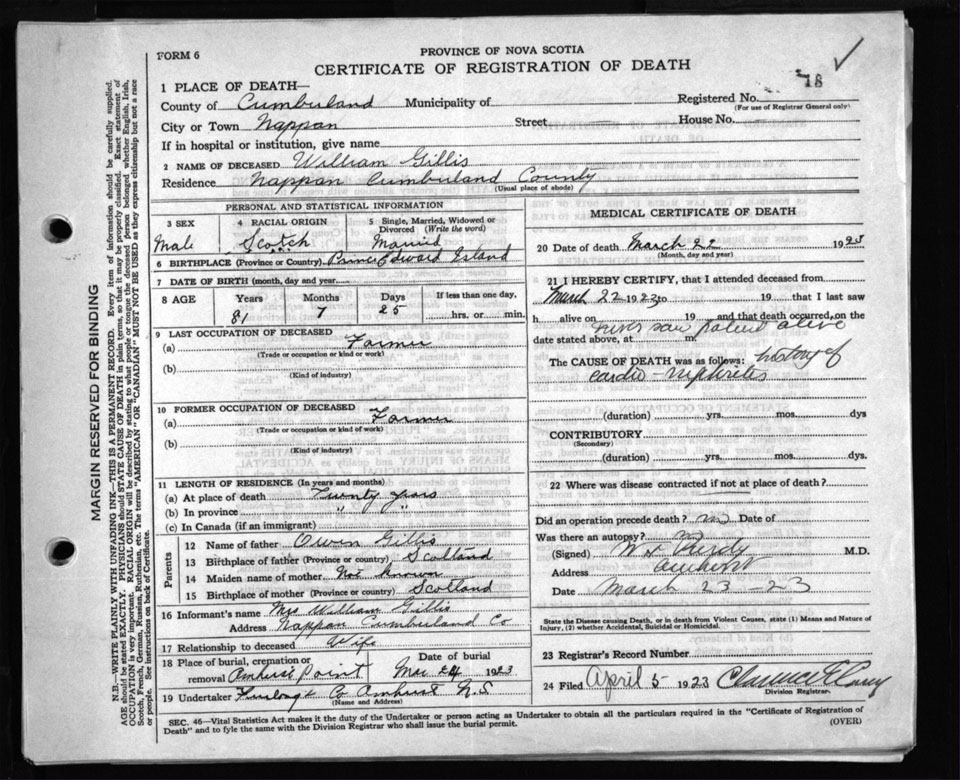 FORM 6
PROVINCE OF NOVA SCOTIA
CERTIFICATE OF REGISTRATION OF DEATH
18
1 PLACE OF DEATH—
County of Cumberland Municipality of
Registered No.
(For use of Registrar General only)
City or Town Nappan Street House No.
If in hospital or institution, give name
2 NAME OF DECEASED William Gillis
Residence Nappan Cumberland County
(Usual place of abode)
PERSONAL AND STATISTICAL INFORMATION
3 SEX 4 RACIAL ORIGIN 5 Single, Married, Widowed or Divorced (Write the word)
Male Scotch Married
6 BIRTHPLACE (Province or Country) Prince Edward Island
7 DATE OF BIRTH (month, day and year)
8 AGE Years Months Days If less than one day,
81 7 25 hrs. or min.
9 LAST OCCUPATION OF DECEASED
(a) Farmer
(Trade or occupation or kind or work)
(b)
(Kind of industry)
10 FORMER OCCUPATION OF DECEASED
(a) Farmer
(Trade or occupation or kind of work)
(b)
(Kind of industry)
11 LENGTH OF RESIDENCE (In years and months)
(a) At place of death Twenty years
(b) In province " "
(c) In Canada (if an immigrant)
Parents
12 Name of father Owen Gillis
13 Birthplace of father (Province or country) Scotland
14 Maiden name of mother Not known
15 Birthplace of mother (Province or country) Scotland
16 Informant's name Mrs William Gillis
Address Nappan Cumberland Co
17 Relationship to deceased Wife
18 Place of burial, cremation or removal Amherst Point Date of burial Mar 24 1923
19 Undertaker Co Amherst N.S
(Name and Address)
MEDICAL CERTIFICATE OF DEATH
20 Date of death March 22 1923
(Month, day and year)
21 I HEREBY CERTIFY, that I attended deceased from
March 22 1923 to 19 that I last saw
h alive on 19 and that death occurred, on the
never saw patient alive
date stated above, at m.
The CAUSE OF DEATH was as follows: history of
cardio-nephritis
(duration) yrs. mos. dys
CONTRIBUTORY
(Secondary)
(duration) yrs. mos. dys.
22 Where was disease contracted if not at place of death?
Did an operation precede death? no Date of
Was there an autopsy?
(Signed) M.D.
Address Amherst
Date March 23 - 23
State the Disease causing Death, or in death from Violent Causes, state (1) Means and Nature of Injury, (2) whether Accidental, Suicidal or Homicidal.
23 Registrar's Record Number
24 Filed April 5 1923
Division Registrar.
SEC. 46—Vital Statistics Act makes it the duty of the Undertaker or person acting as Undertaker to obtain all the particulars required in the "Certificate of Registration of
Death" and to fyle the same with the Division Registrar who shall issue the burial permit.
(OVER)
MARGIN RESERVED FOR BINDING
N.B.—WRITE PLAINLY WITH UNFADING INK—THIS IS A PERMANENT RECORD. Every item of information should be carefully supplied.
AGE should be stated EXACTLY. PHYSICIANS should STATE CAUSE OF DEATH in plain terms, so that it may be properly classified. Exact statement of
OCCUPATION is very important. RACIAL ORIGIN will be described by stating to what people or tongue the deceased person belonged, whether English, Irish,
Scotch, French, German, Russian, Ruthenian, etc. The terms "AMERICAN" OR "CANADIAN" MUST NOT BE USED as they express citizenship but not a race
or people. See instructions on back of Certificate.